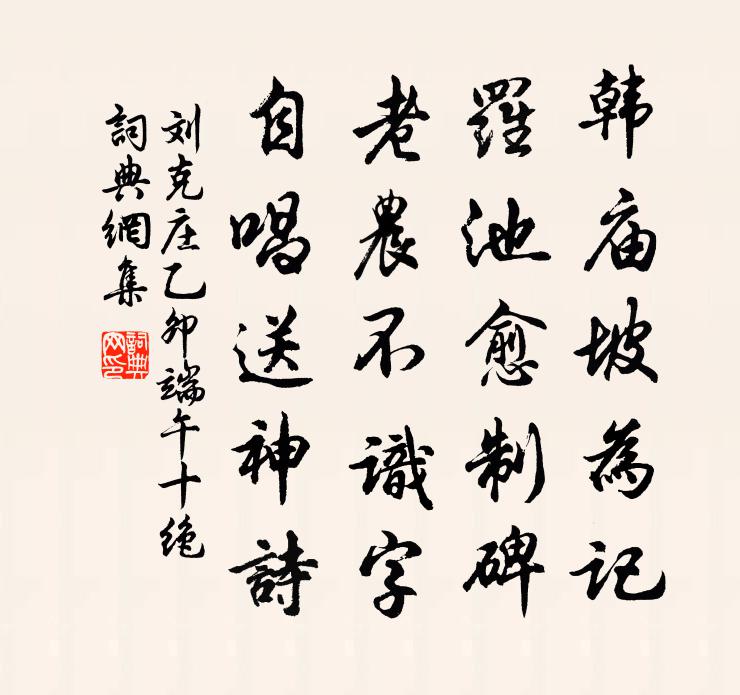 韩庙坡為记
羅池愈制碑
老農不識字
自唱送神詩
刘克庄乙卯端午十绝
詞典網集
詞典
网印